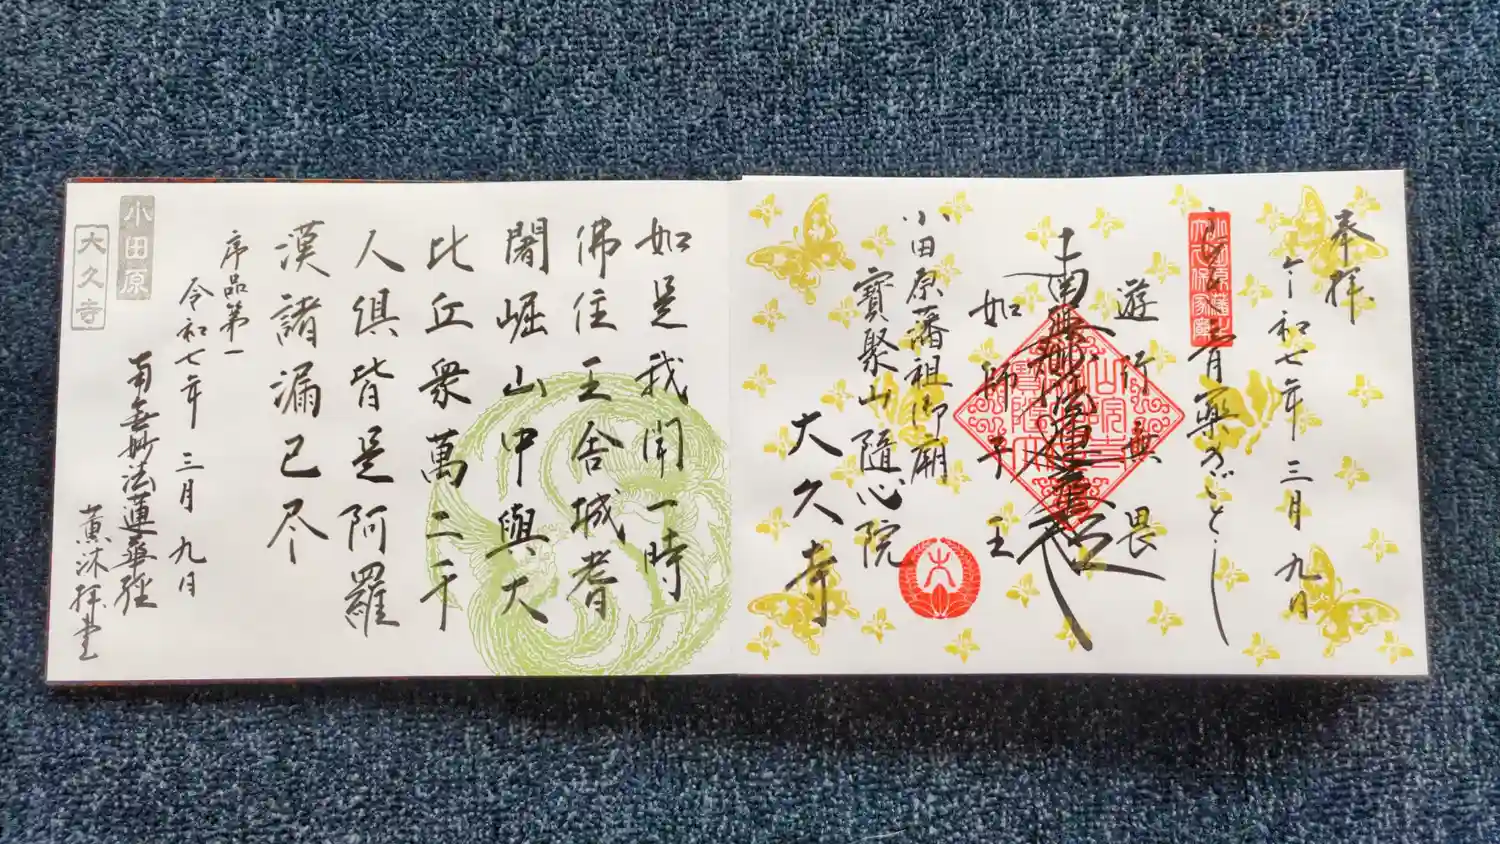 奉拝
令和七年 三月 九日
小田原藩主
大久保家廟
遊行無畏
南無妙法蓮華経
如師子王
小田原藩祖御廟
寶聚山 隨心院
大久寺
如是我聞一時
佛住王舎城耆
闍崛山中與大
比丘衆萬二千
人俱皆是阿羅
漢諸漏已尽
序品第一
令和七年 三月 九日
南無妙法蓮華経
薫沐拝書
小田原
大久寺